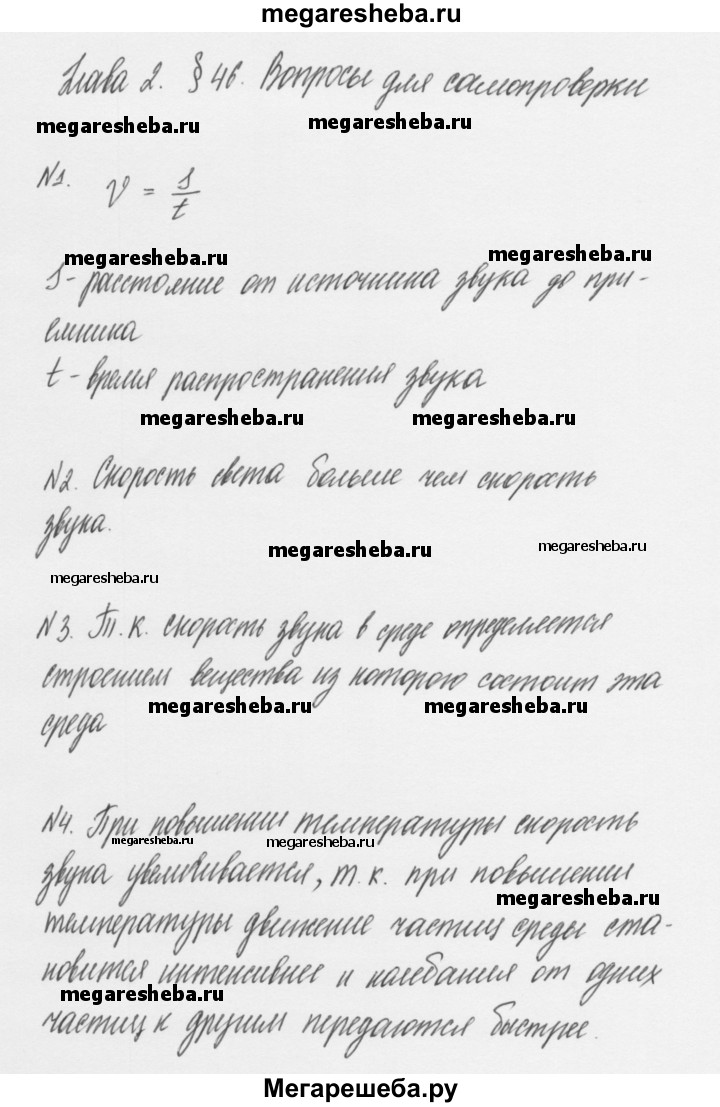 megaresheba.ru
Глава 2. § 46. Вопросы для самопроверки
megaresheba.ru megaresheba.ru
№1. V = S/t
megaresheba.ru megaresheba.ru
S - расстояние от источника звука до при-
емника
t - время распространения звука
megaresheba.ru megaresheba.ru
№2. Скорость света больше чем скорость
звука.
megaresheba.ru megaresheba.ru
megaresheba.ru
№3. Т.к. скорость звука в среде определяется
строением вещества из которого состоит эта
megaresheba.ru megaresheba.ru
среда
№4. При повышении температуры скорость
megaresheba.ru megaresheba.ru
звука увеличивается, т.к. при повышении
megaresheba.ru
температуры движение частиц среды ста-
новится интенсивнее и колебания от одних
megaresheba.ru
частиц к другим передаются быстрее.
Мегарешеба.ру